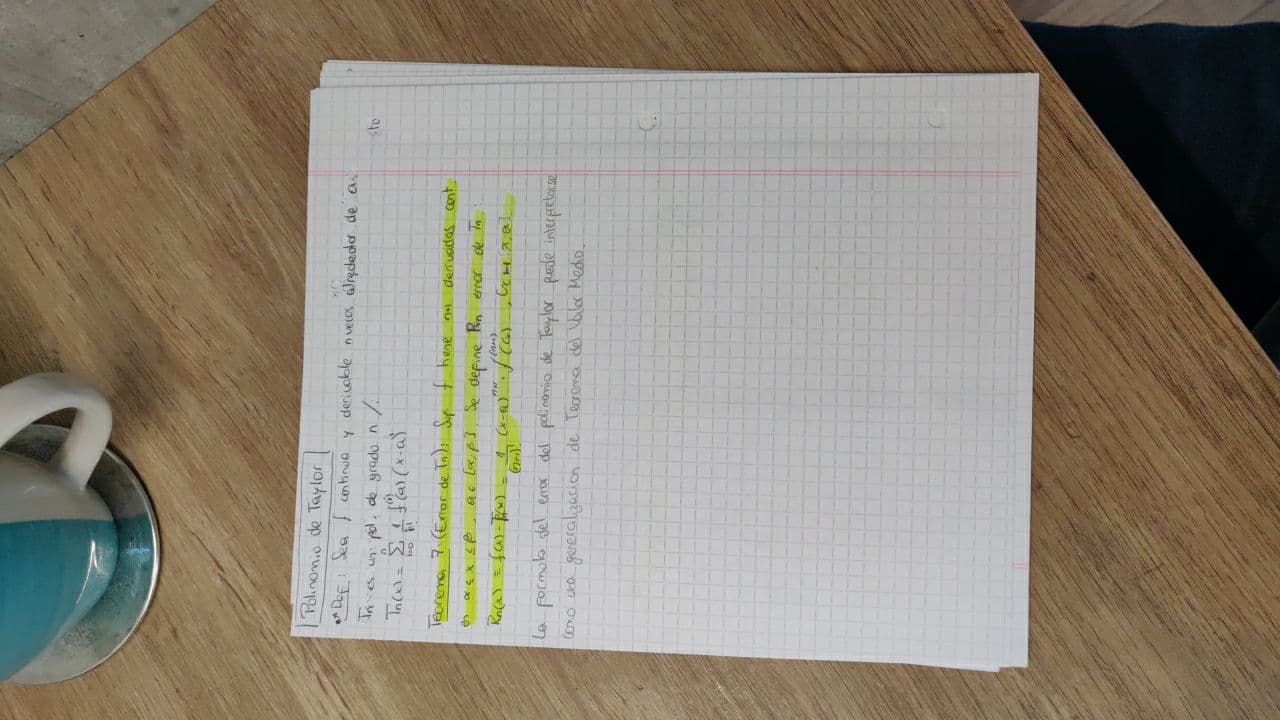 Polinomio de Taylor
Def: Sea f continua y derivable n veces alrededor de a.
Tn es un pol. de grado n /.
Tn(x) = Σ_{i=0}^{n} 1/i! f^(i)(a) (x-a)^i
Teorema 7: (Error de Tn): Sup. f tiene n+1 derivadas cont.
en α ≤ x ≤ β, a ∈ [α, β]. Se define Rn error de Tn:
Rn(x) = f(x) - Tn(x) = 1/(n+1)! (x-a)^{n+1} · f^(n+1)(Cx), Cx [x,a]
La formula del error del polinomio de Taylor puede interpretarse
como una generalizacion de Teorema del Valor Medio.